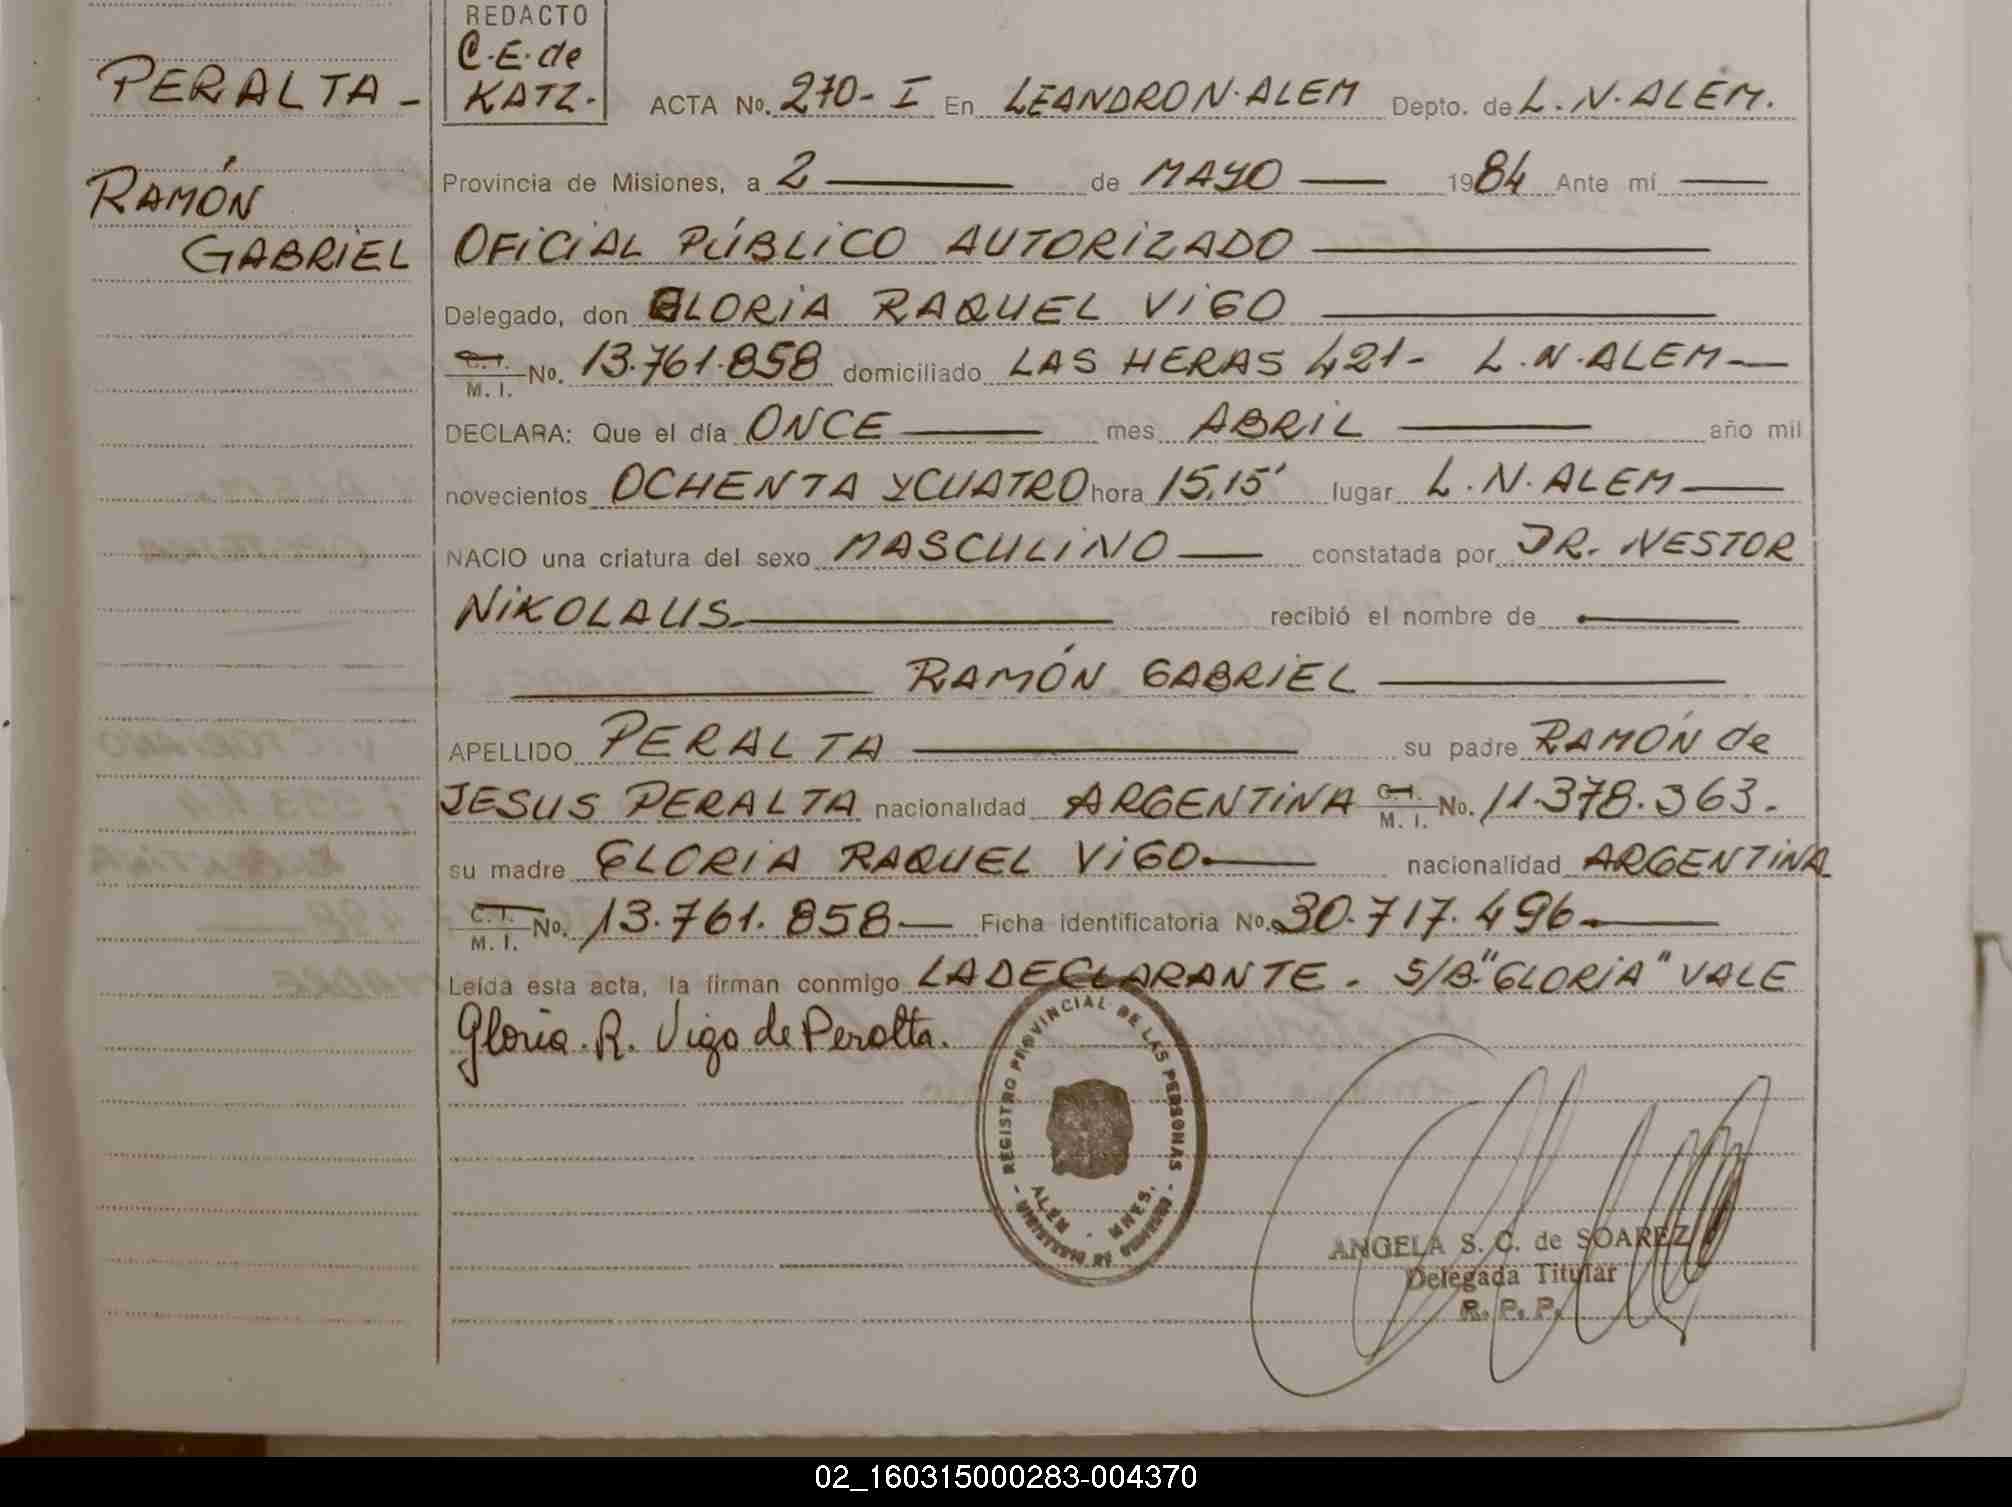 REDACTO
C.E. de
KATZ.
PERALTA -
RAMÓN
GABRIEL
ACTA No. 270- I En LEANDRO N. ALEM Depto. de L.N. ALEM.
Provincia de Misiones, a 2 de MAYO 1984 Ante mí
OFICIAL PÚBLICO AUTORIZADO
Delegado, don GLORIA RAQUEL VIGO
C.I. M.I. No. 13.761.858 domiciliado LAS HERAS 421- L.N. ALEM
DECLARA: Que el día ONCE mes ABRIL año mil
novecientos OCHENTA Y CUATRO hora 15,15' lugar L.N. ALEM
NACIO una criatura del sexo MASCULINO constatada por DR. NESTOR
NIKOLAUS recibió el nombre de
RAMÓN GABRIEL
APELLIDO PERALTA su padre RAMÓN de
JESUS PERALTA nacionalidad ARGENTINA C.I. M.I. No. 11.378.363.
su madre GLORIA RAQUEL VIGO nacionalidad ARGENTINA
C.I. M.I. No. 13.761.858 Ficha identificatoria No. 30.717.496
Leída esta acta, la firman conmigo LA DECLARANTE. S/B "GLORIA" VALE
Gloria. R. Vigo de Peralta.
REGISTRO PROVINCIAL DE LAS PERSONAS
ALEM - MNES.
ANGELA S. C. de SOAREZ
Delegada Titular
R. P. P.
02_160315000283-004370